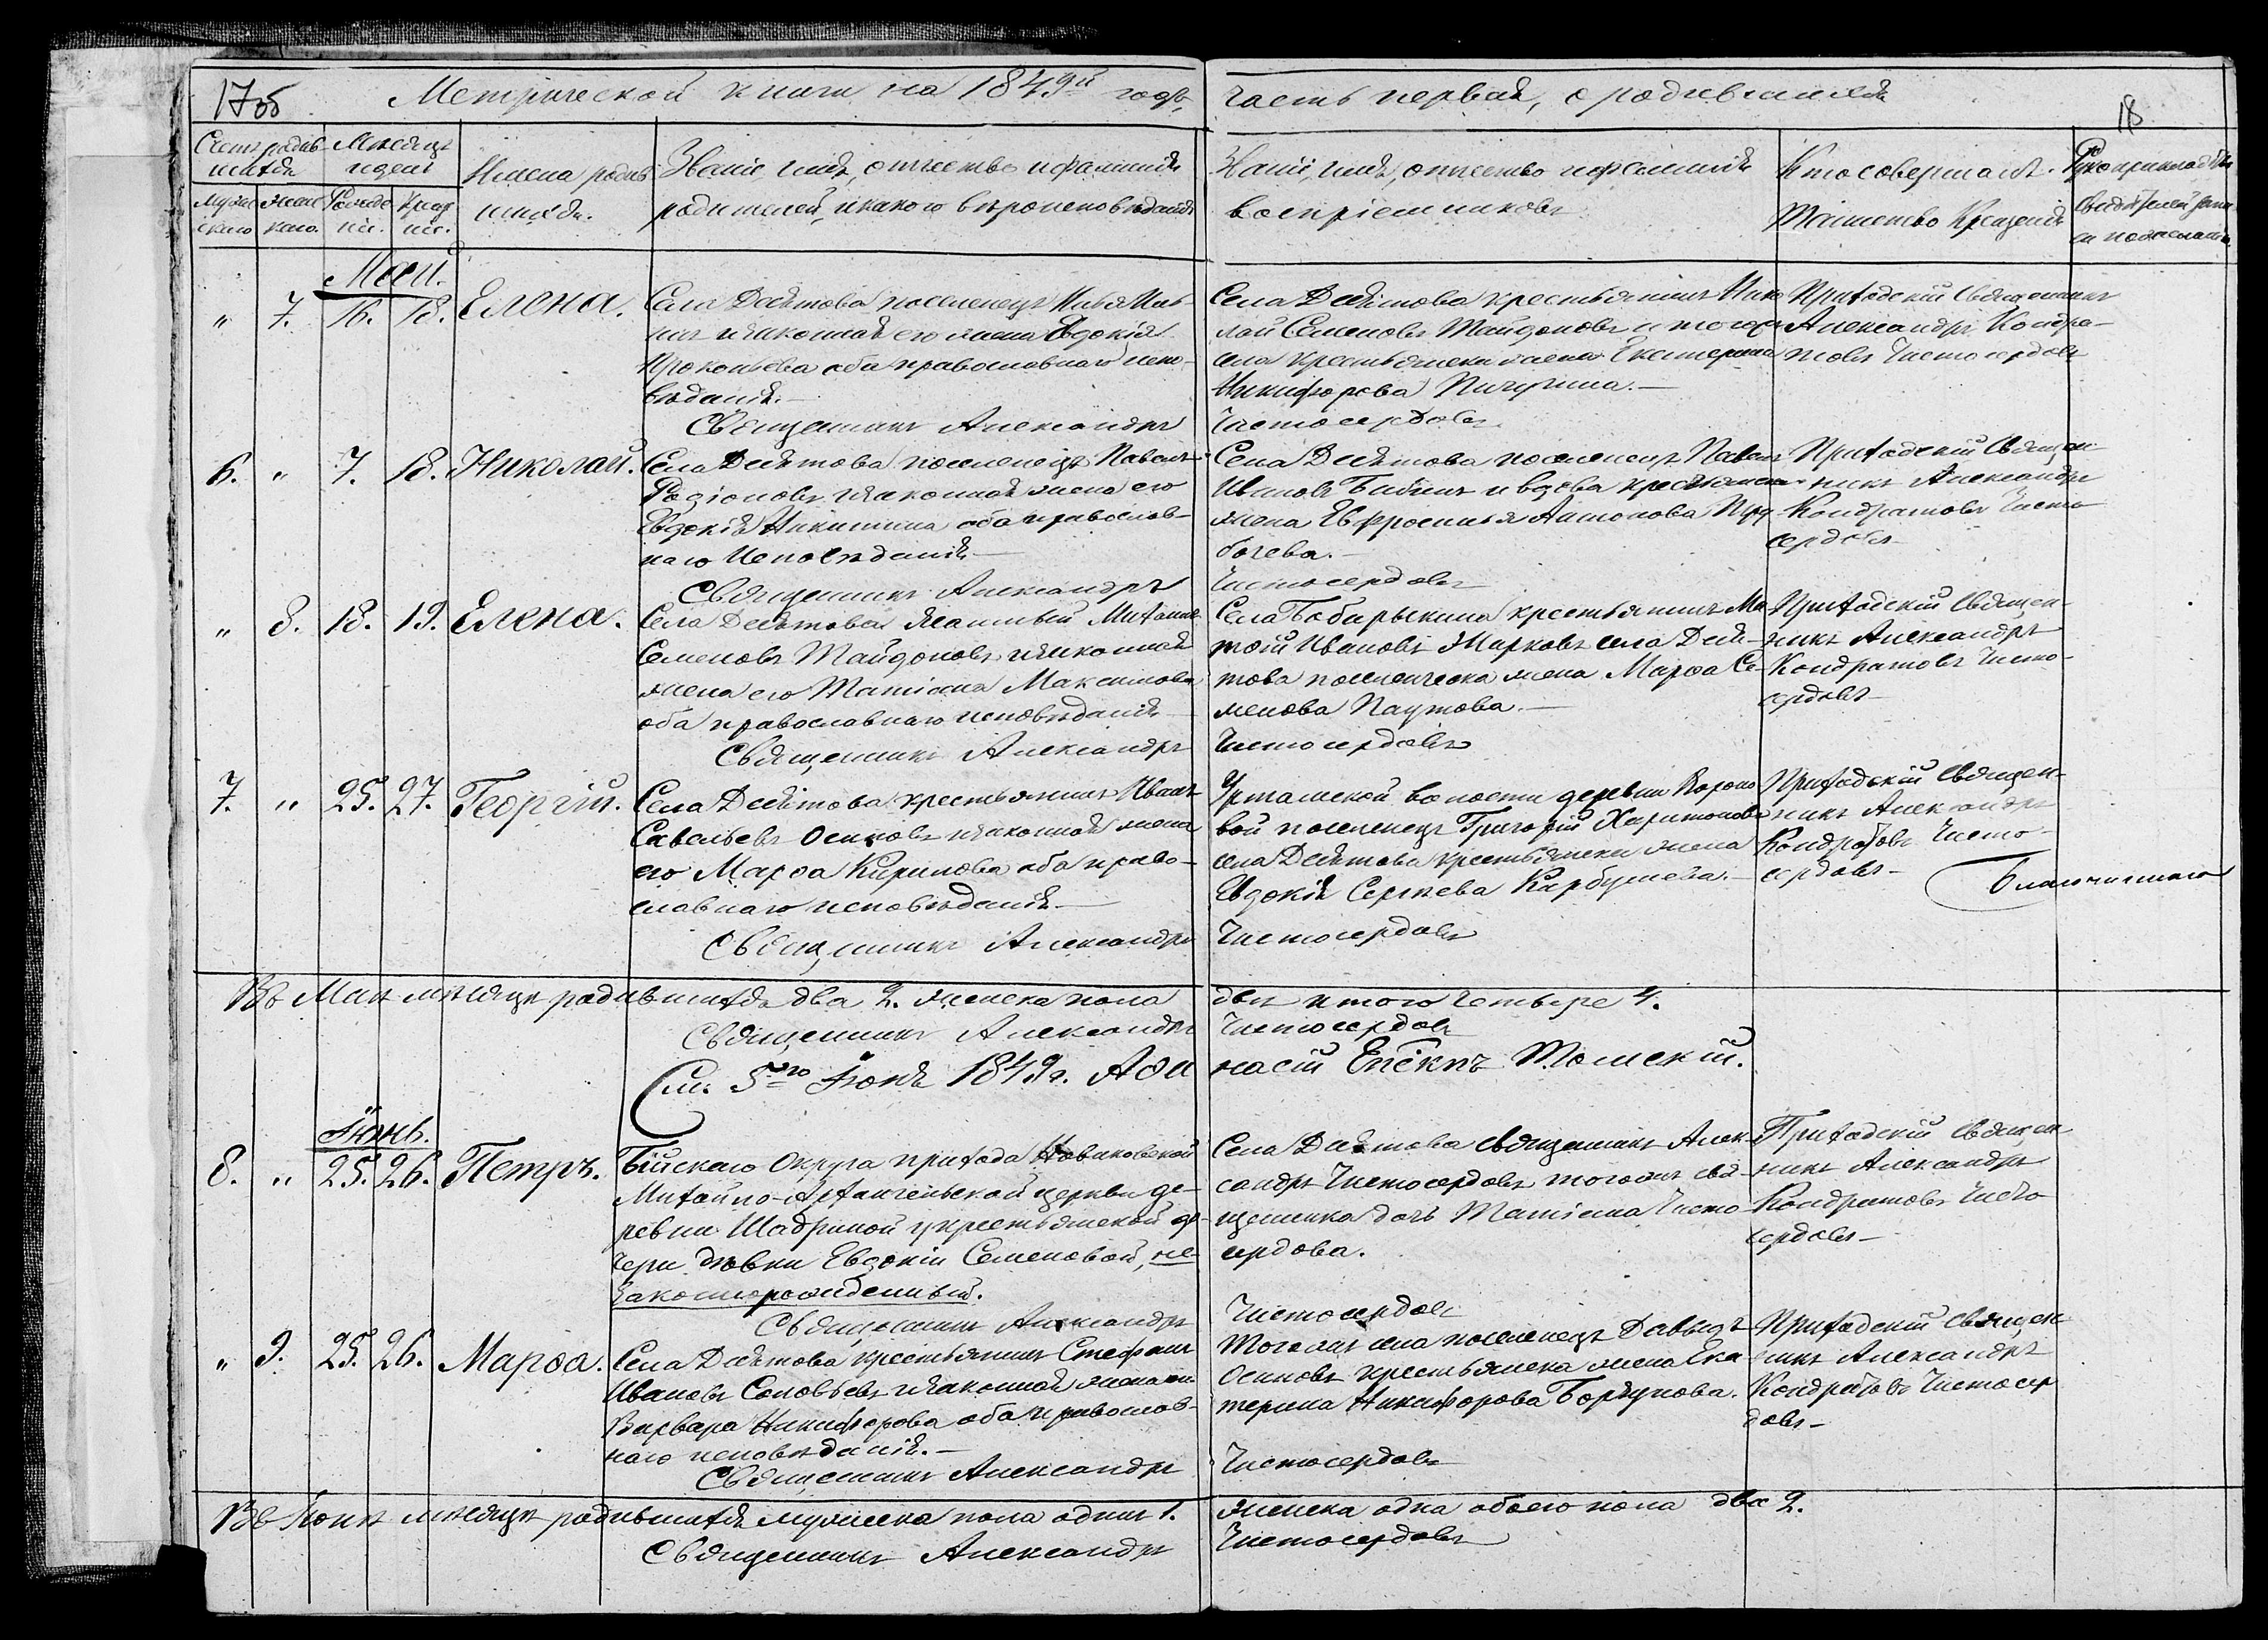 17об
Метрической книги на 1849й годъ,
часть первая, о родившихся
18
Счетъ родив-
шихся
Мѣсяцъ
и день
Имена родив
шихся.
Званіе, имя, отчество и фамилія
родителей, и какого вѣроисповѣданія
Званіе, имя, отчество и фамилія
воспріемниковъ
Кто совершалъ
таинство крещенія
Рукоприкладство
свидѣтелей записи
по желанію
Муже
скаго
Жен
скаго.
Рожде
нія.
Крещ
нія.
Май.
" 7. 16. 18. Елена.
Села Десятова поселенецъ Илья Иль-
инъ и законная его жена Евдокія
Прокопьева оба православнаго испо-
вѣданія.—
Священникъ Александръ
Села Десятова крестьянинъ Нико
лай Семеновъ Майдоновъ и тогожъ
села крестьянска жена Екатерина
Никифорова Пичугина.—
Чистосердовъ
Приходскій Священникъ
Александръ Кондра-
товъ Чистосердовъ
6. " 7. 18. Николай.
Села Десятова поселенецъ Павелъ
Родіоновъ и законная жена его
Евдокія Никитина оба православ-
наго Исповѣданія—
Священникъ Александръ
Села Десятова поселенецъ Павелъ
Ивановъ и вдова крестьянска
жена Евфросинья Антонова
Чистосердовъ
Приходскій Священ-
никъ Александръ
Кондратовъ Чисто
сердовъ—
" 8. 18. 19. Елена.
Села Десятова Михаилъ
Семеновъ Майдоновъ и законная
жена его Татіана Максимова
оба православнаго исповѣданія
Священникъ Александръ
Села Бобарыкина крестьянинъ Ма
твій Ивановъ Марковъ села Деся-
това поселенческа жена Марѳа Се-
менова Паутова.—
Чистосердовъ
Приходскій Священ-
никъ Александръ
Кондратовъ Чисто-
сердовъ—
7. " 25. 27. Георгій.
Села Десятова крестьянинъ Иванъ
Савельевъ Осиповъ и законная жена
его Марѳа Кирилова оба право-
славнаго исповѣданія.—
Священникъ Александръ
Уртамской волости деревни Вороно
вой поселенецъ Григорій Харитоновъ
села Десятова крестьянска жена
Евдокія Сергѣева Карбушева.—
Чистосердовъ
Приходскій Священ-
никъ Александръ
Кондратовъ Чисто-
сердовъ—
Благочиннаго
Въ Маѣ мѣсяцѣ родившихся два 2. женска пола
двѣ итого четыре 4.
Священникъ Александръ
Чистосердовъ
См. 5го Іюня 1849 г. Аѳа
насій Епскпъ Томскій.
Іюнь.
8. " 25. 26. Петръ.
Бійскаго Округа прихода Новиковской
Михайло-Архангельской церкви де-
ревни Шадриной у крестьянской до-
чери дѣвки Евдокіи Семеновой, не-
законнорожденный.
Священникъ Александръ
Села Десятова священникъ Алек-
сандръ Чистосердовъ тогожъ свя-
щенника дочь Татіана Чисто-
сердова.
Чистосердовъ
Приходскій священ
никъ Александръ
Кондратовъ Чисто
сердовъ—
" 9. 25. 26. Марѳа.
Села Десятова крестьянинъ Стефанъ
Ивановъ Соловьевъ и законная жена его
Варвара Никифорова оба православ-
наго исповѣданія.—
Священникъ Александръ
Тогожъ села поселенецъ Давыдъ
Осиповъ крестьянска жена Ека
терина Никифорова Боргунова.
Чистосердовъ
Приходскій Священ
никъ Александръ
Кондратовъ Чистосер
довъ—
Въ Іюнѣ мѣсяцѣ родившихся мужеска пола одинъ 1.
женска одна обоего пола два 2.
Священникъ Александръ
Чистосердовъ